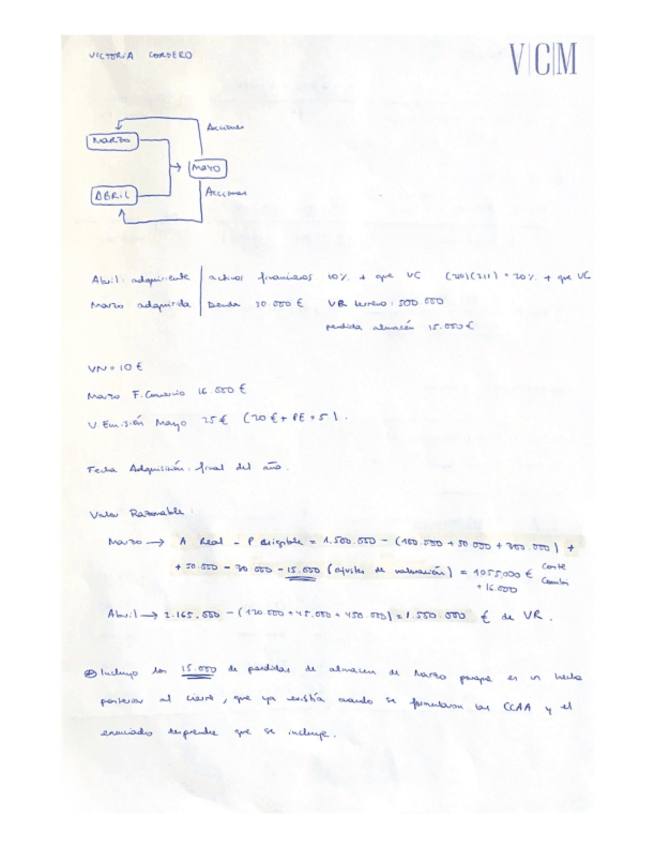 VICTORIA CORDERO
V|C|M
Acciones
MARZO
MAYO
ABRIL
Acciones
Abril: adquirente | activos financieros 10% + que VC (210)(211) = 20% + que VC
Marzo adquirida | Deuda 30.000 € VR terreno: 500.000
perdida almacén 15.000 €
VN = 10 €
Marzo F. Comercio 16.000 €
V. Emisión Mayo 25 € (20 € + PE = 5).
Fecha Adquisición: final del año.
Valor Razonable:
Marzo → A Real - P exigible = 1.500.000 - (100.000 + 50.000 + 300.000) +
+ 50.000 - 30.000 - 15.000 (ajustes de valoración) = 1055.000 €
+ 16.000
Abril → 2.165.000 - (120.000 + 45.000 + 450.000) = 1.550.000 € de VR.
Incluyo los 15.000 de perdidas de almacen de Marzo porque es un hecho
posterior al cierre, que ya existía cuando se formularon las CCAA y el
enunciado que se incluye.